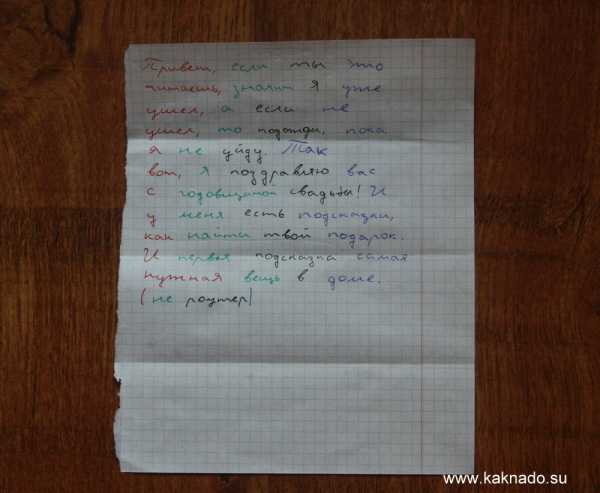 Привет, если ты это
читаешь, значит я уже
ушел, а если не
ушел, то подожди, пока
я не уйду. Так
вот, я поздравляю вас
с годовщиной свадьбы! И
у меня есть подсказки,
как найти твой подарок.
И первая подсказка самая
нужная вещь в доме.
(не роутер)
www.kaknado.su